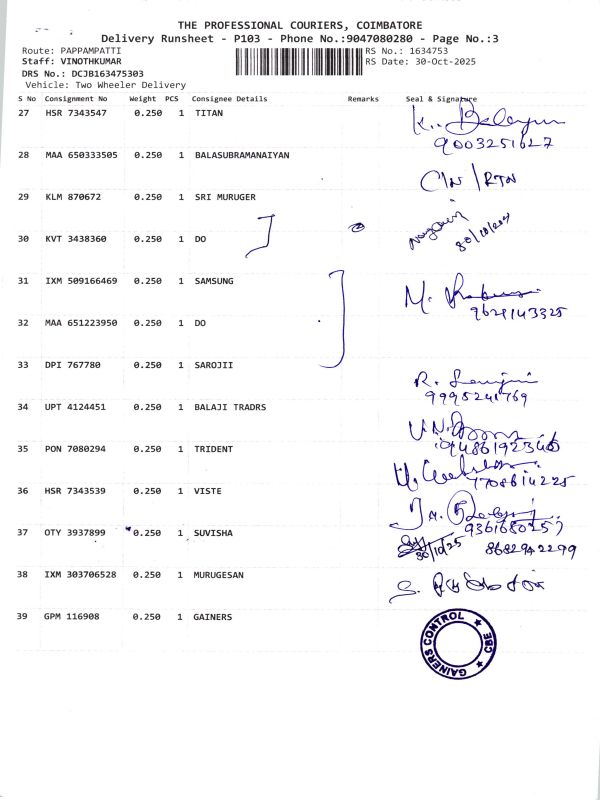 THE PROFESSIONAL COURIERS, COIMBATORE
Delivery Runsheet - P103 - Phone No.:9047080280 - Page No.:3
Route: PAPPAMPATTI RS No.: 1634753
Staff: VINOTHKUMAR RS Date: 30-Oct-2025
DRS No.: DCJB163475303
Vehicle: Two Wheeler Delivery
S No Consignment No Weight PCS Consignee Details Remarks Seal & Signature
27 HSR 7343547 0.250 1 TITAN
9003251627
28 MAA 650333505 0.250 1 BALASUBRAMANAIYAN
C/N / RTN
29 KLM 870672 0.250 1 SRI MURUGER
30 KVT 3438360 0.250 1 DO
30/10/2025
31 IXM 509166469 0.250 1 SAMSUNG
9629143325
32 MAA 651223950 0.250 1 DO
33 DPI 767780 0.250 1 SAROJII
9995241769
34 UPT 4124451 0.250 1 BALAJI TRADRS
35 PON 7080294 0.250 1 TRIDENT
7708614225
36 HSR 7343539 0.250 1 VISTE
9361680257
37 OTY 3937899 0.250 1 SUVISHA
30/10/25 8682942299
38 IXM 303706528 0.250 1 MURUGESAN
39 GPM 116908 0.250 1 GAINERS
GAINERS CONTROL ★ CBE ★